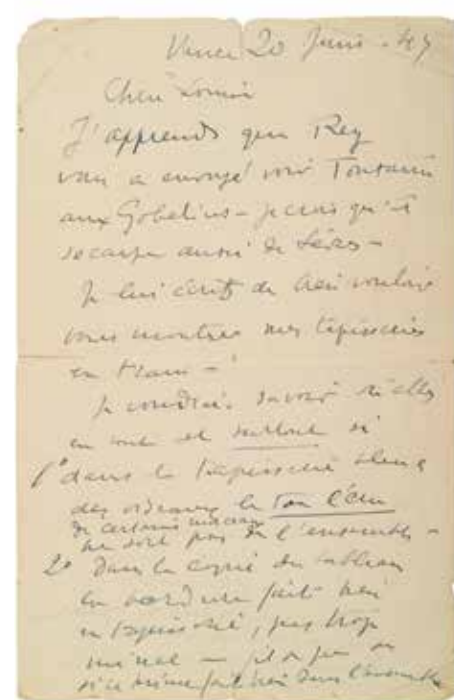 Vence 20 Juin - 47
Cher
J'apprends que Rey
vous a envoyé voir Fontaine
aux Gobelins - je crois qu'il
s'occupe aussi de Sèvres -
Je lui écris de bien vouloir
vous montrer mes tapisseries
en train -
Je voudrais savoir où elles
en sont et surtout si
1° dans la tapisserie bleue
des oiseaux le ton écru
de certains
ne sort pas de l'ensemble -
2° Dans la copie du tableau
la bordure fait bien
en tapisserie, pas trop
dans l'ensemble